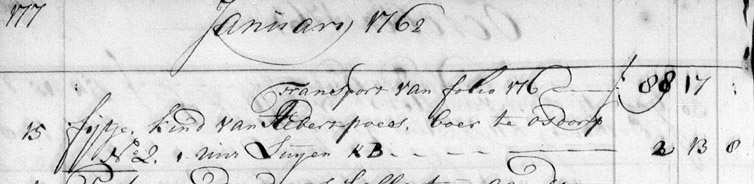 177 January 1762
Transport van folio 176 — ƒ 88 17 :
15 fijtje, kind van Albert poees, boer te osdorp
No 2. 1 uur Luyen KB - - - - 2 13 8